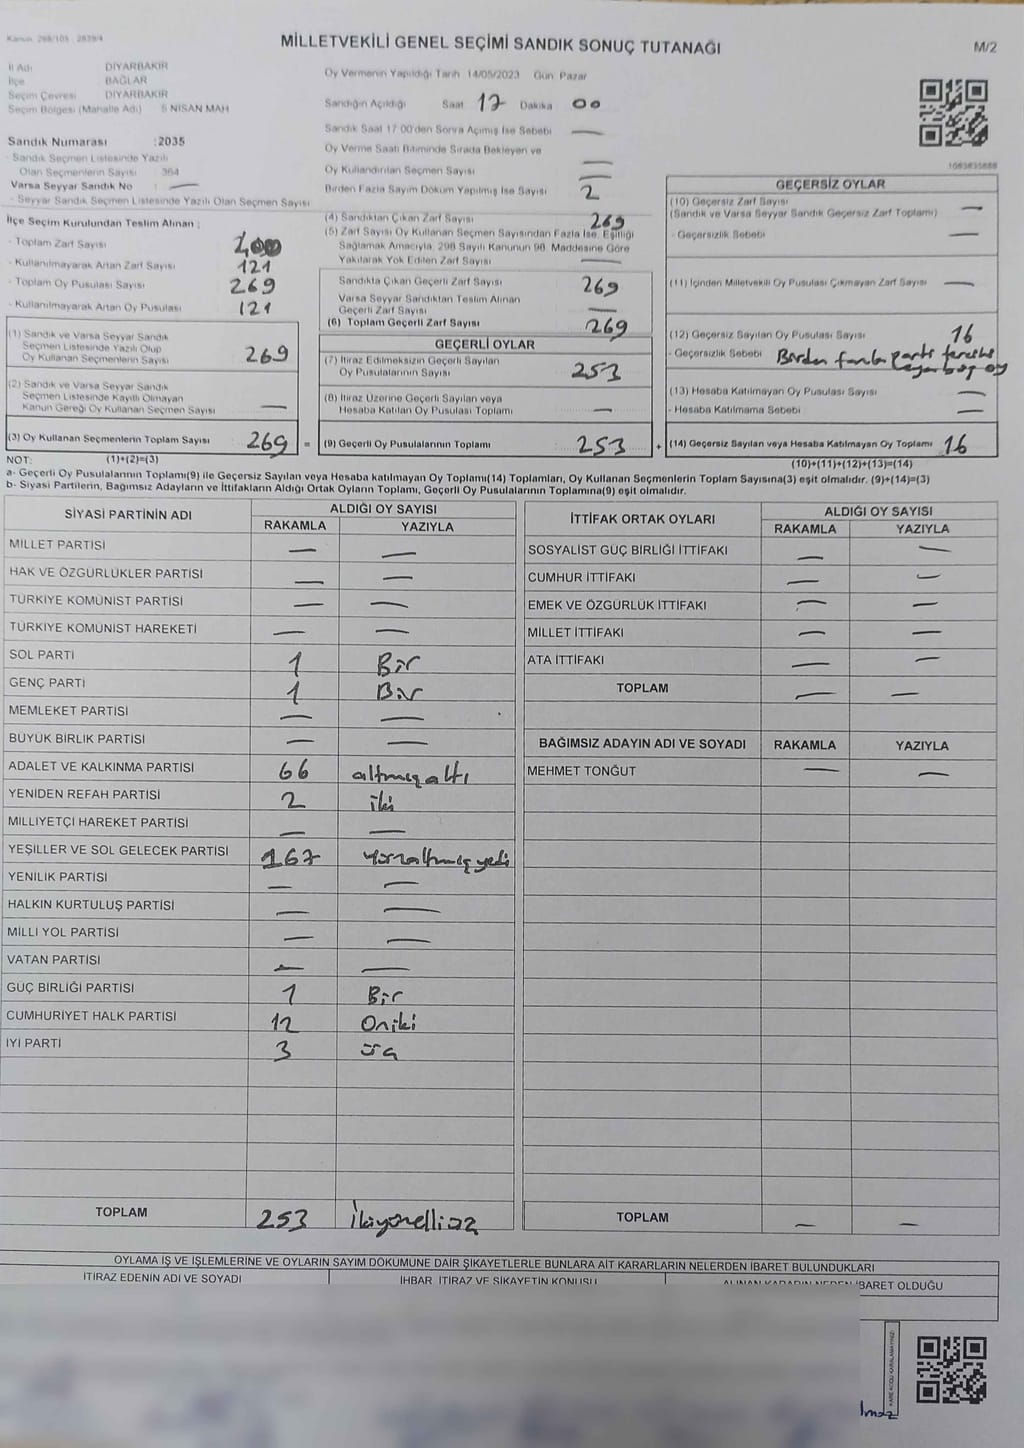 Kanun 298/105 , 2839/4
MİLLETVEKİLİ GENEL SEÇİMİ SANDIK SONUÇ TUTANAĞI
M/2
İl Adı DİYARBAKIR
İlçe BAĞLAR
Seçim Çevresi DİYARBAKIR
Seçim Bölgesi (Mahalle Adı) 5 NİSAN MAH
Sandık Numarası :2035
- Sandık Seçmen Listesinde Yazılı
Olan Seçmenlerin Sayısı : 364
Varsa Seyyar Sandık No : —
- Seyyar Sandık Seçmen Listesinde Yazılı Olan Seçmen Sayısı
Oy Vermenin Yapıldığı Tarih 14/05/2023 Gün Pazar
Sandığın Açıldığı Saat 17 Dakika 00
Sandık Saat 17 00'den Sonra Açımış İse Sebebi —
Oy Verme Saati Bitiminde Sırada Bekleyen ve
Oy Kullandırılan Seçmen Sayısı —
Birden Fazla Sayım Döküm Yapılmış İse Sayısı 2
1083835888
İlçe Seçim Kurulundan Teslim Alınan ;
- Toplam Zarf Sayısı
- Kullanılmayarak Artan Zarf Sayısı 121
- Toplam Oy Pusulası Sayısı 269
- Kullanılmayarak Artan Oy Pusulası 121
(1) Sandık ve Varsa Seyyar Sandık
Seçmen Listesinde Yazılı Olup
Oy Kullanan Seçmenlerin Sayısı 269
(2) Sandık ve Varsa Seyyar Sandık
Seçmen Listesinde Kayıtlı Olmayan
Kanun Gereği Oy Kullanan Seçmen Sayısı —
(3) Oy Kullanan Seçmenlerin Toplam Sayısı 269 =
(4) Sandıktan Çıkan Zarf Sayısı 269
(5) Zarf Sayısı Oy Kullanan Seçmen Sayısından Fazla İse, Eşitliği
Sağlamak Amacıyla, 298 Sayılı Kanunun 98. Maddesine Göre
Yakılarak Yok Edilen Zarf Sayısı —
Sandıkta Çıkan Geçerli Zarf Sayısı 269
Varsa Seyyar Sandıktan Teslim Alınan
Geçerli Zarf Sayısı —
(6) Toplam Geçerli Zarf Sayısı 269
GEÇERLİ OYLAR
(7) İtiraz Edilmeksizin Geçerli Sayılan
Oy Pusulalarının Sayısı 253
(8) İtiraz Üzerine Geçerli Sayılan veya
Hesaba Katılan Oy Pusulası Toplamı —
(9) Geçerli Oy Pusulalarının Toplamı 253 +
GEÇERSİZ OYLAR
(10) Geçersiz Zarf Sayısı —
(Sandık ve Varsa Seyyar Sandık Geçersiz Zarf Toplamı)
- Geçersizlik Sebebi —
(11) İçinden Milletvekili Oy Pusulası Çıkmayan Zarf Sayısı —
(12) Geçersiz Sayılan Oy Pusulası Sayısı 16
- Geçersizlik Sebebi Birden fazla parti
boş oy
(13) Hesaba Katılmayan Oy Pusulası Sayısı —
- Hesaba Katılmama Sebebi —
(14) Geçersiz Sayılan veya Hesaba Katılmayan Oy Toplamı 16
NOT: (1)+(2)=(3)
(10)+(11)+(12)+(13)=(14)
a- Geçerli Oy Pusulalarının Toplamı(9) ile Geçersiz Sayılan veya Hesaba katılmayan Oy Toplamı(14) Toplamları, Oy Kullanan Seçmenlerin Toplam Sayısına(3) eşit olmalıdır. (9)+(14)=(3)
b- Siyasi Partilerin, Bağımsız Adayların ve İttifakların Aldığı Ortak Oyların Toplamı, Geçerli Oy Pusulalarının Toplamına(9) eşit olmalıdır.
SİYASİ PARTİNİN ADI ALDIĞI OY SAYISI
RAKAMLA YAZIYLA
MİLLET PARTİSİ — —
HAK VE ÖZGÜRLÜKLER PARTİSİ — —
TÜRKİYE KOMÜNİST PARTİSİ — —
TÜRKİYE KOMÜNİST HAREKETİ — —
SOL PARTİ 1 Bir
GENÇ PARTİ 1 Bir
MEMLEKET PARTİSİ — —
BÜYÜK BİRLİK PARTİSİ — —
ADALET VE KALKINMA PARTİSİ 66 altmışaltı
YENİDEN REFAH PARTİSİ 2 iki
MİLLİYETÇİ HAREKET PARTİSİ — —
YEŞİLLER VE SOL GELECEK PARTİSİ 167 Yüzaltmışyedi
YENİLİK PARTİSİ — —
HALKIN KURTULUŞ PARTİSİ — —
MİLLİ YOL PARTİSİ — —
VATAN PARTİSİ — —
GÜÇ BİRLİĞİ PARTİSİ 1 Bir
CUMHURİYET HALK PARTİSİ 12 Oniki
İYİ PARTİ 3 üç
TOPLAM 253 İkiyüzelliüç
İTTİFAK ORTAK OYLARI ALDIĞI OY SAYISI
RAKAMLA YAZIYLA
SOSYALİST GÜÇ BİRLİĞİ İTTİFAKI — —
CUMHUR İTTİFAKI — —
EMEK VE ÖZGÜRLÜK İTTİFAKI — —
MİLLET İTTİFAKI — —
ATA İTTİFAKI — —
TOPLAM — —
BAĞIMSIZ ADAYIN ADI VE SOYADI RAKAMLA YAZIYLA
MEHMET TONĞUT — —
TOPLAM — —
OYLAMA İŞ VE İŞLEMLERİNE VE OYLARIN SAYIM DÖKÜMÜNE DAİR ŞİKAYETLERLE BUNLARA AİT KARARLARIN NELERDEN İBARET BULUNDUKLARI
İTİRAZ EDENİN ADI VE SOYADI İHBAR, İTİRAZ VE ŞİKAYETİN KONUSU ALINAN KARARIN NEDEN İBARET OLDUĞU
KARE KODU KARALAMAYINIZ!